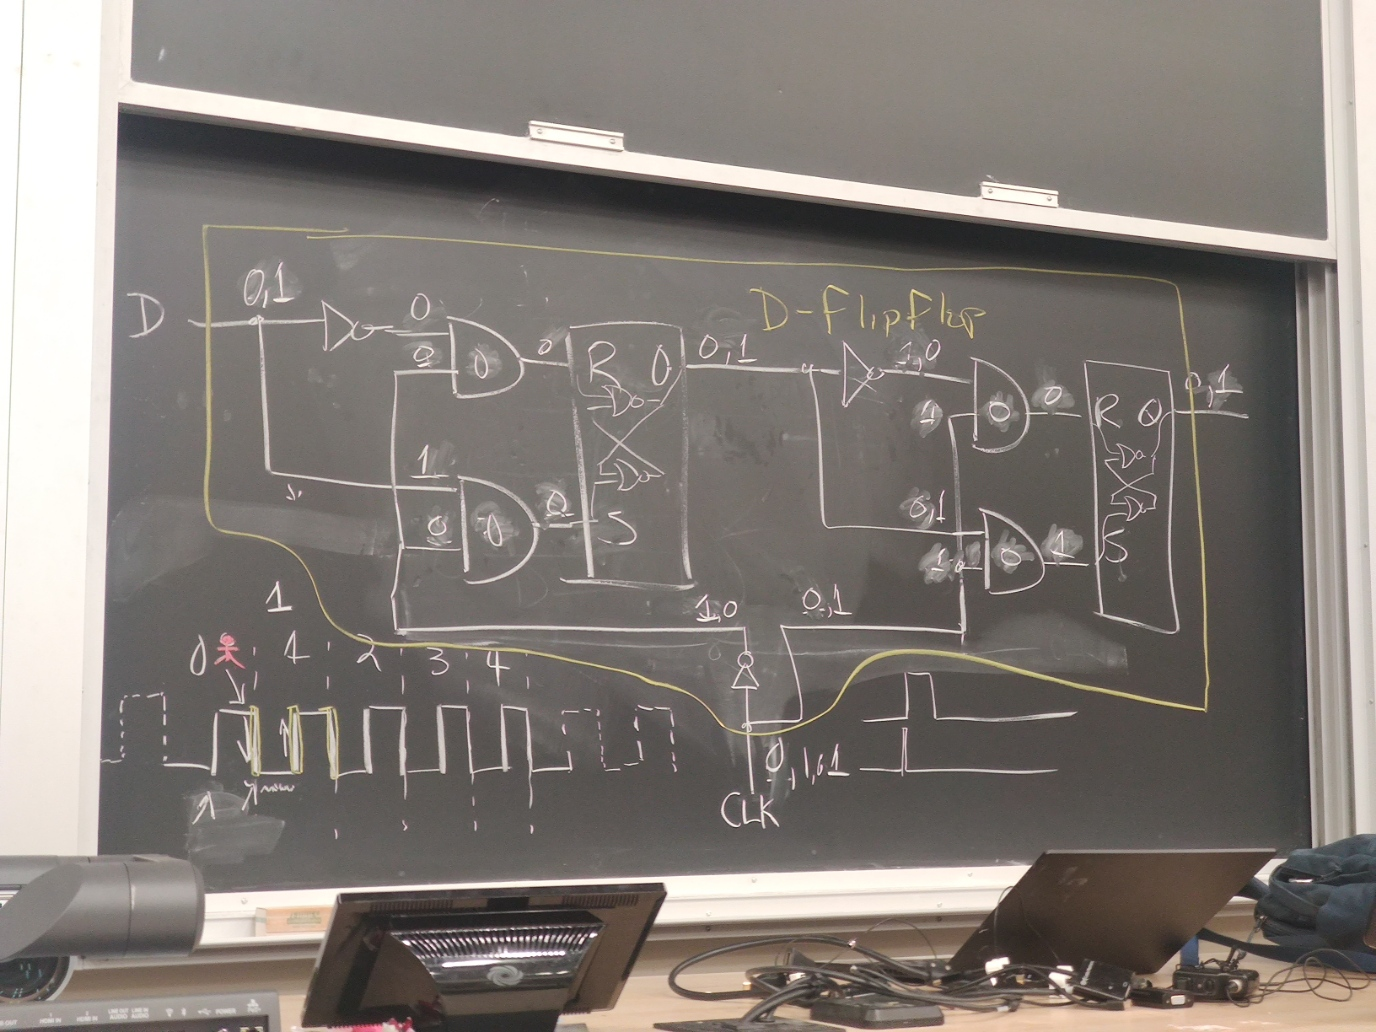 D-FlipFlop
D
0,1
0
0
0
0
R
Q
0,1
1,0
1
0
0
R
Q
0,1
1
0
0
0
S
0,1
1
0
1
S
1
1,0
0,1
0
1
2
3
4
0,1,0,1
CLK